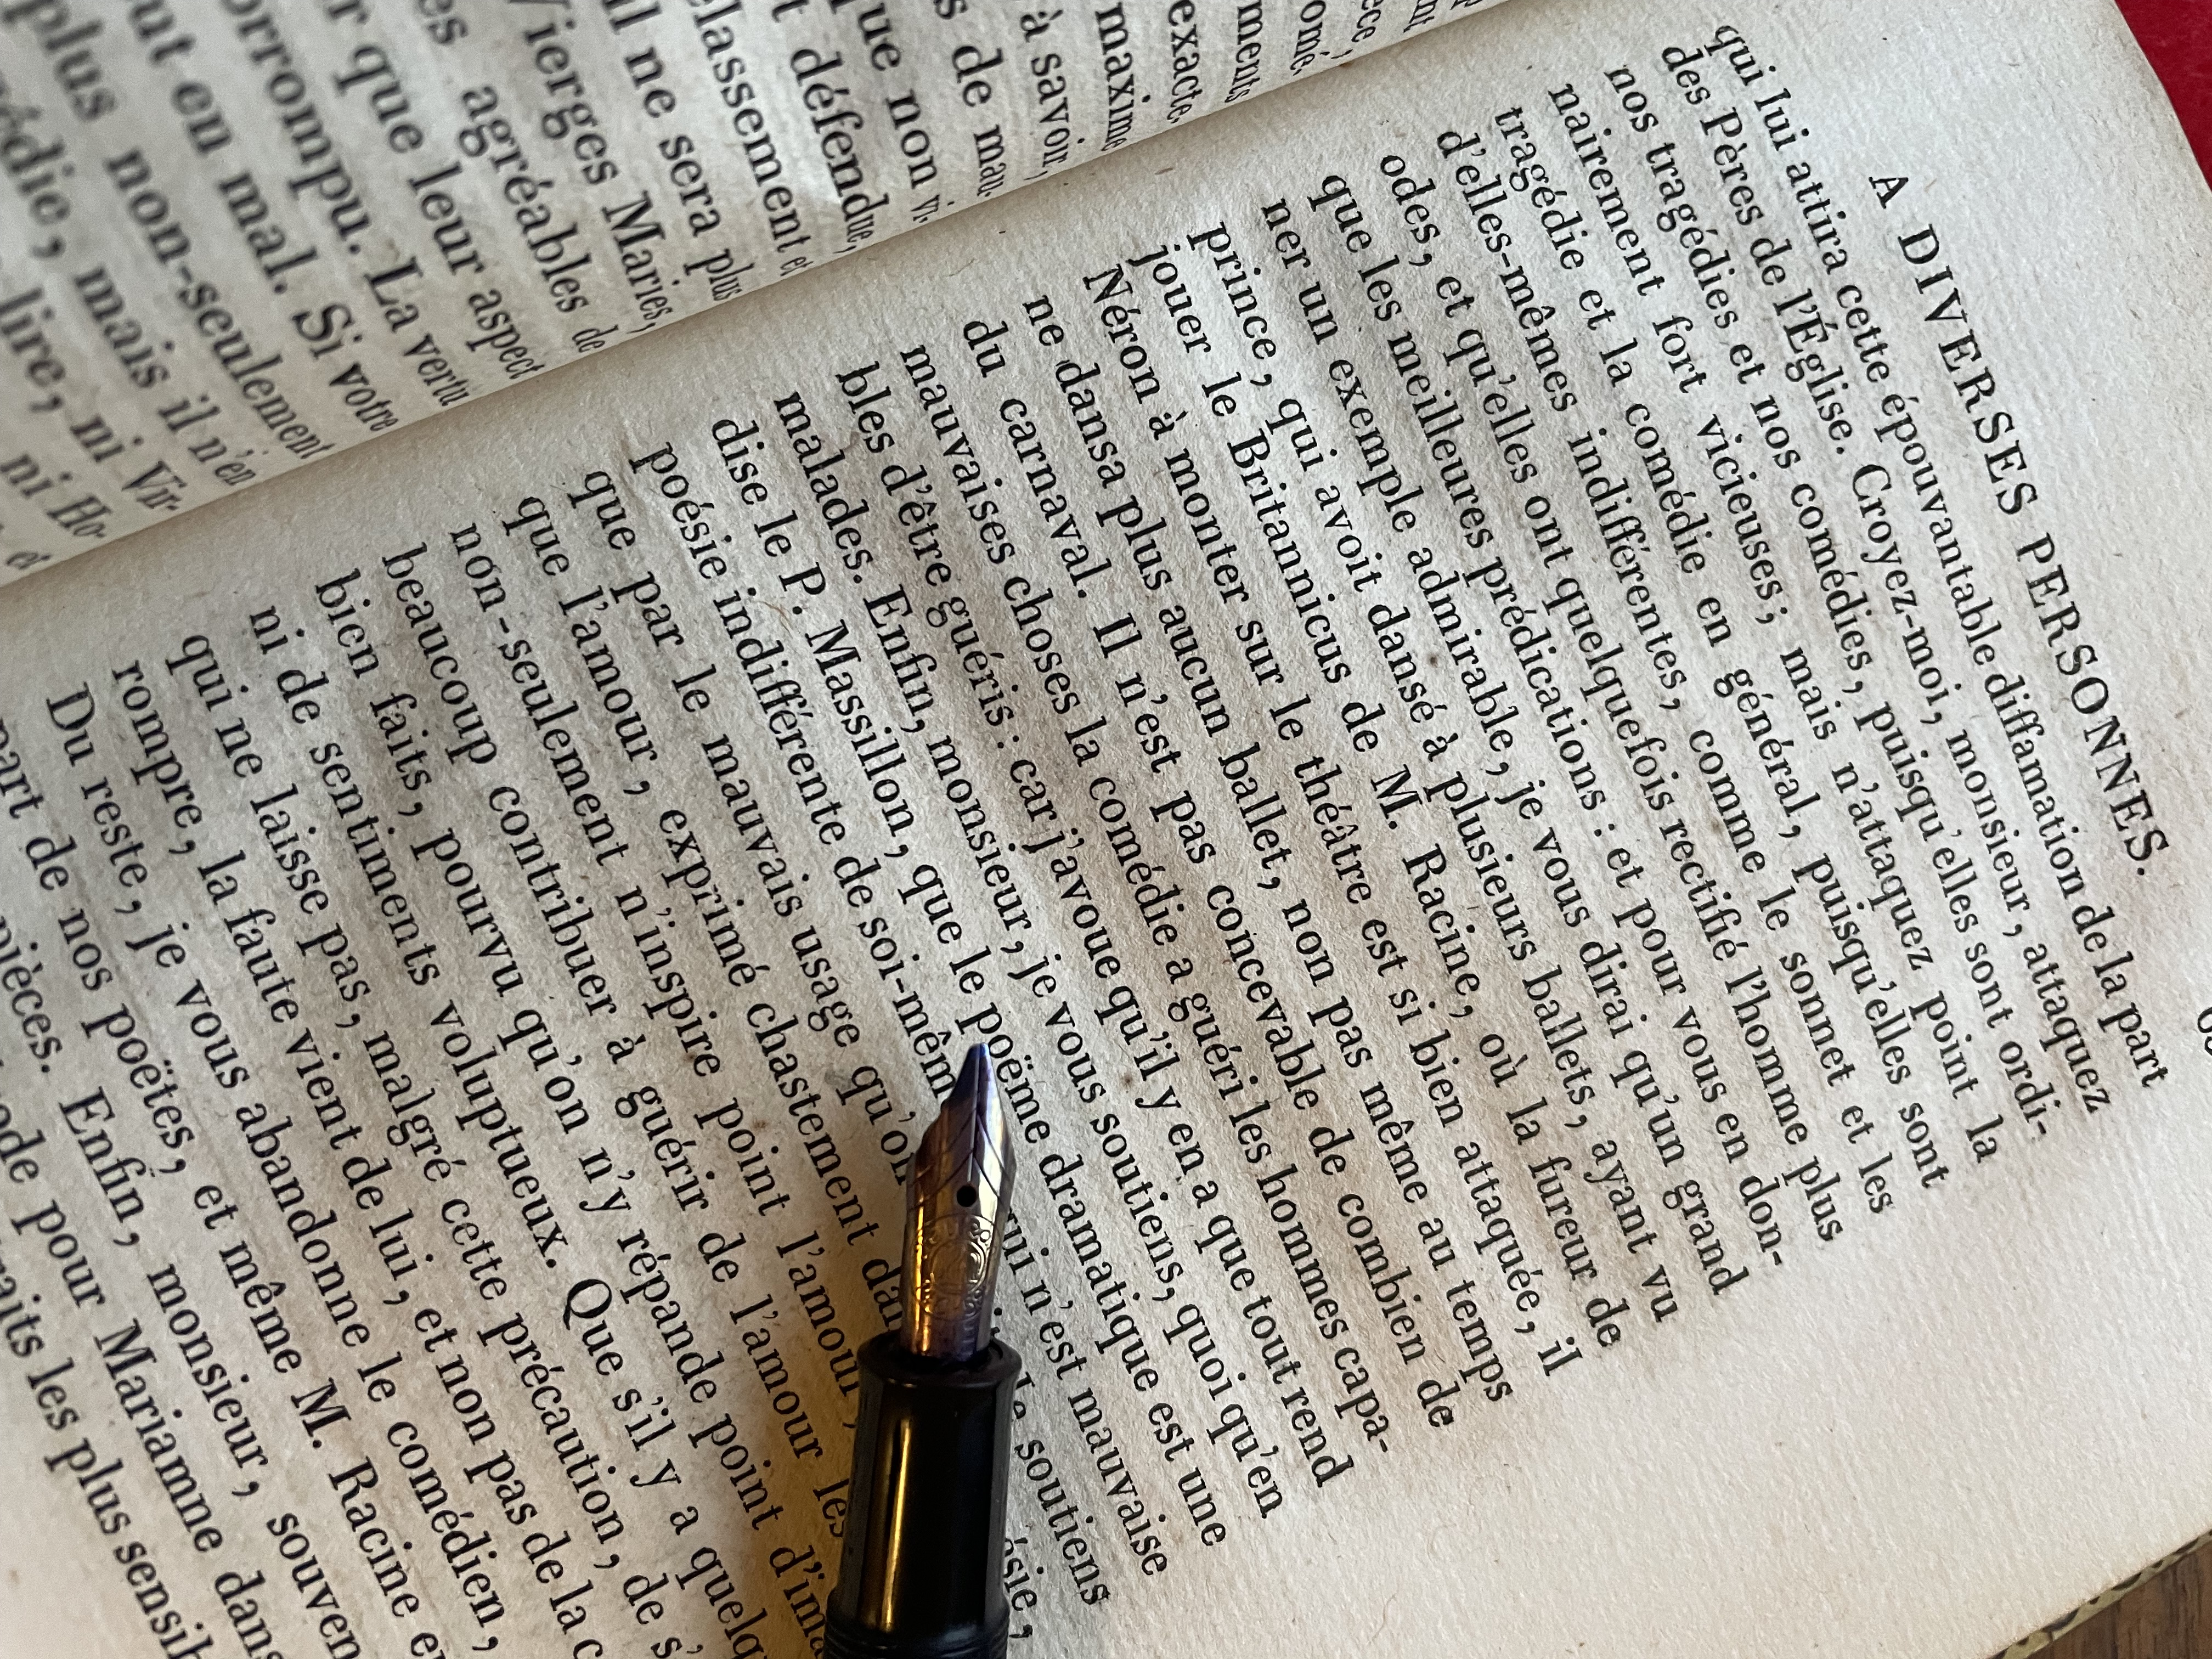 plus
ut en mal. Si votre
corrompu. La vertu
r que leur aspect
es agréables de
Vierges Maries,
il ne sera plus
lassement et
t défendue,
que non vi-
s de mau-
à savoir,
maxime
exacte,
ments
omé-
plus non-seulement
édie, mais il n'en
lire, ni Vir-
ni Ho-
et
A DIVERSES PERSONNES.
qui lui attira cette épouvantable diffamation de la part
des Pères de l'Église. Croyez-moi, monsieur, attaquez
nos tragédies et nos comédies, puisqu'elles sont ordi-
nairement fort vicieuses; mais n'attaquez point la
tragédie et la comédie en général, puisqu'elles sont
d'elles-mêmes indifférentes, comme le sonnet et les
odes, et qu'elles ont quelquefois rectifié l'homme plus
que les meilleures prédications : et pour vous en don-
ner un exemple admirable, je vous dirai qu'un grand
prince, qui avoit dansé à plusieurs ballets, ayant vu
jouer le Britannicus de M. Racine, où la fureur de
Néron à monter sur le théâtre est si bien attaquée, il
ne dansa plus aucun ballet, non pas même au temps
du carnaval. Il n'est pas concevable de combien de
mauvaises choses la comédie a guéri les hommes capa-
bles d'être guéris : car j'avoue qu'il y en a que tout rend
malades. Enfin, monsieur, je vous soutiens, quoi qu'en
dise le P. Massillon, que le poëme dramatique est une
poésie indifférente de soi-mêm qui n'est mauvaise
que par le mauvais usage qu'on soutiens
que l'amour, exprimé chastement dan ésie,
non-seulement n'inspire point l'amour,
beaucoup contribuer à guérir de l'amour les
bien faits, pourvu qu'on n'y répande point d'ima
ni de sentiments voluptueux. Que s'il y a quelq
qui ne laisse pas, malgré cette précaution, de s'
rompre, la faute vient de lui, et non pas de la c
Du reste, je vous abandonne le comédien,
part de nos poëtes, et même M. Racine e
pièces. Enfin, monsieur, souven
ode pour Mariamne dans
raits les plus sensib